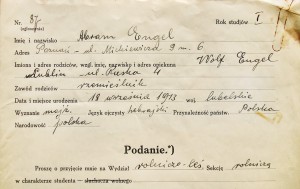 Nr. 87 Rok studiów I
(ogłoszenia)
Imię i nazwisko Abram Engel
Adres Poznań - ul. Mickiewicza 9 m. 6
Imiona i adres rodziców, wzgl. imię, nazwisko i adres opiekuna Wolf Engel
Lublin ul. Ruska 4
Zawód rodziców rzemieślnik
Data i miejsce urodzenia 18 września 1913 woj. lubelskie
Wyznanie mojż. Język ojczysty hebrajski Przynależność państw. Polska
Narodowość polska
Podanie.*)
Proszę o przyjęcie mnie na Wydział rolniczo-leś. Sekcję rolniczą
w charakterze studenta — słuchacza wolnego